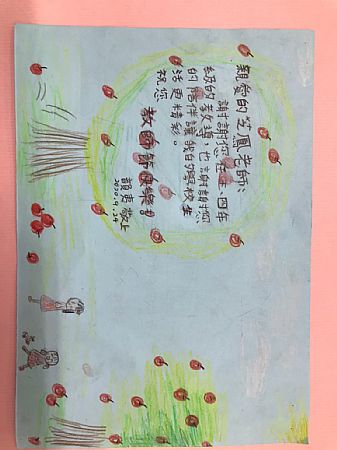 親愛的鳳老師:
謝謝您在三、四年
級的教導,也謝謝您
的陪伴讓我的學校生
活更精彩。
祝您
教師節快樂!
敬上
2020.9.24